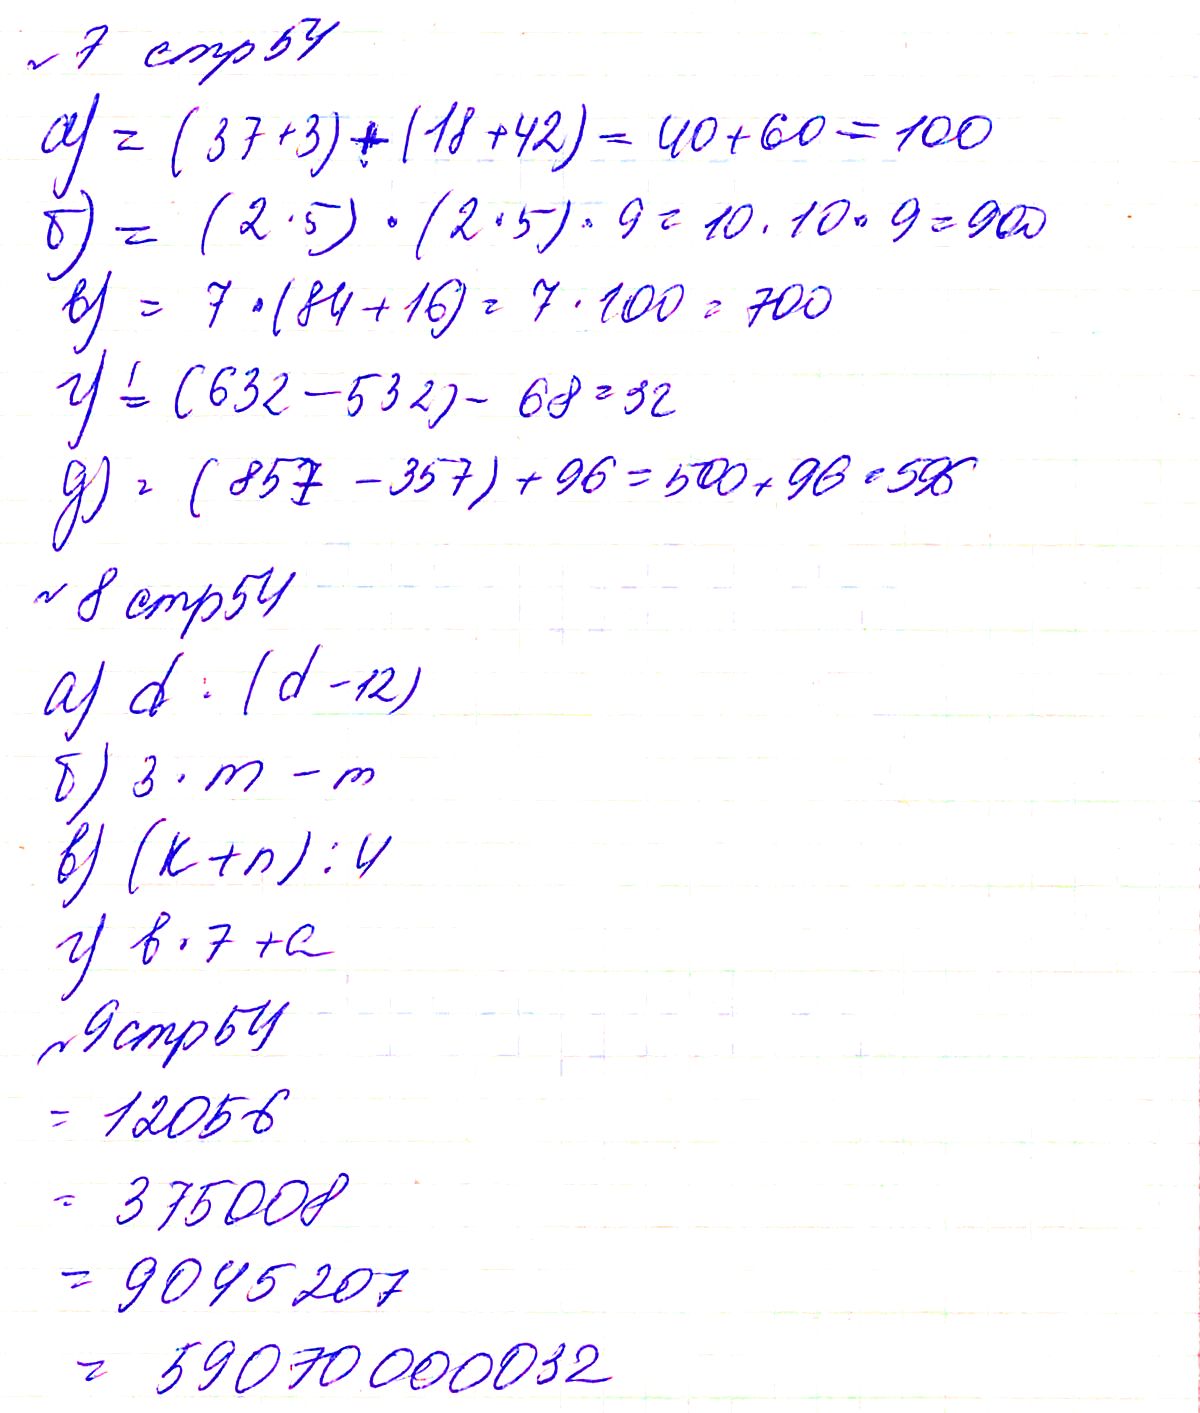 №7 стр 54
а) = (37+3)+(18+42) = 40+60=100
б) = (2·5)·(2·5)·9=10·10·9=900
в) = 7·(84+16)=7·100=700
г) = (632-532)-68=32
д) = (857-357)+96=500+96=596
№8 стр 54
а) d : (d-12)
б) 3·m-m
в) (k+n):4
г) b·7+a
№9 стр 54
= 12056
= 375008
= 9045207
= 59070000032